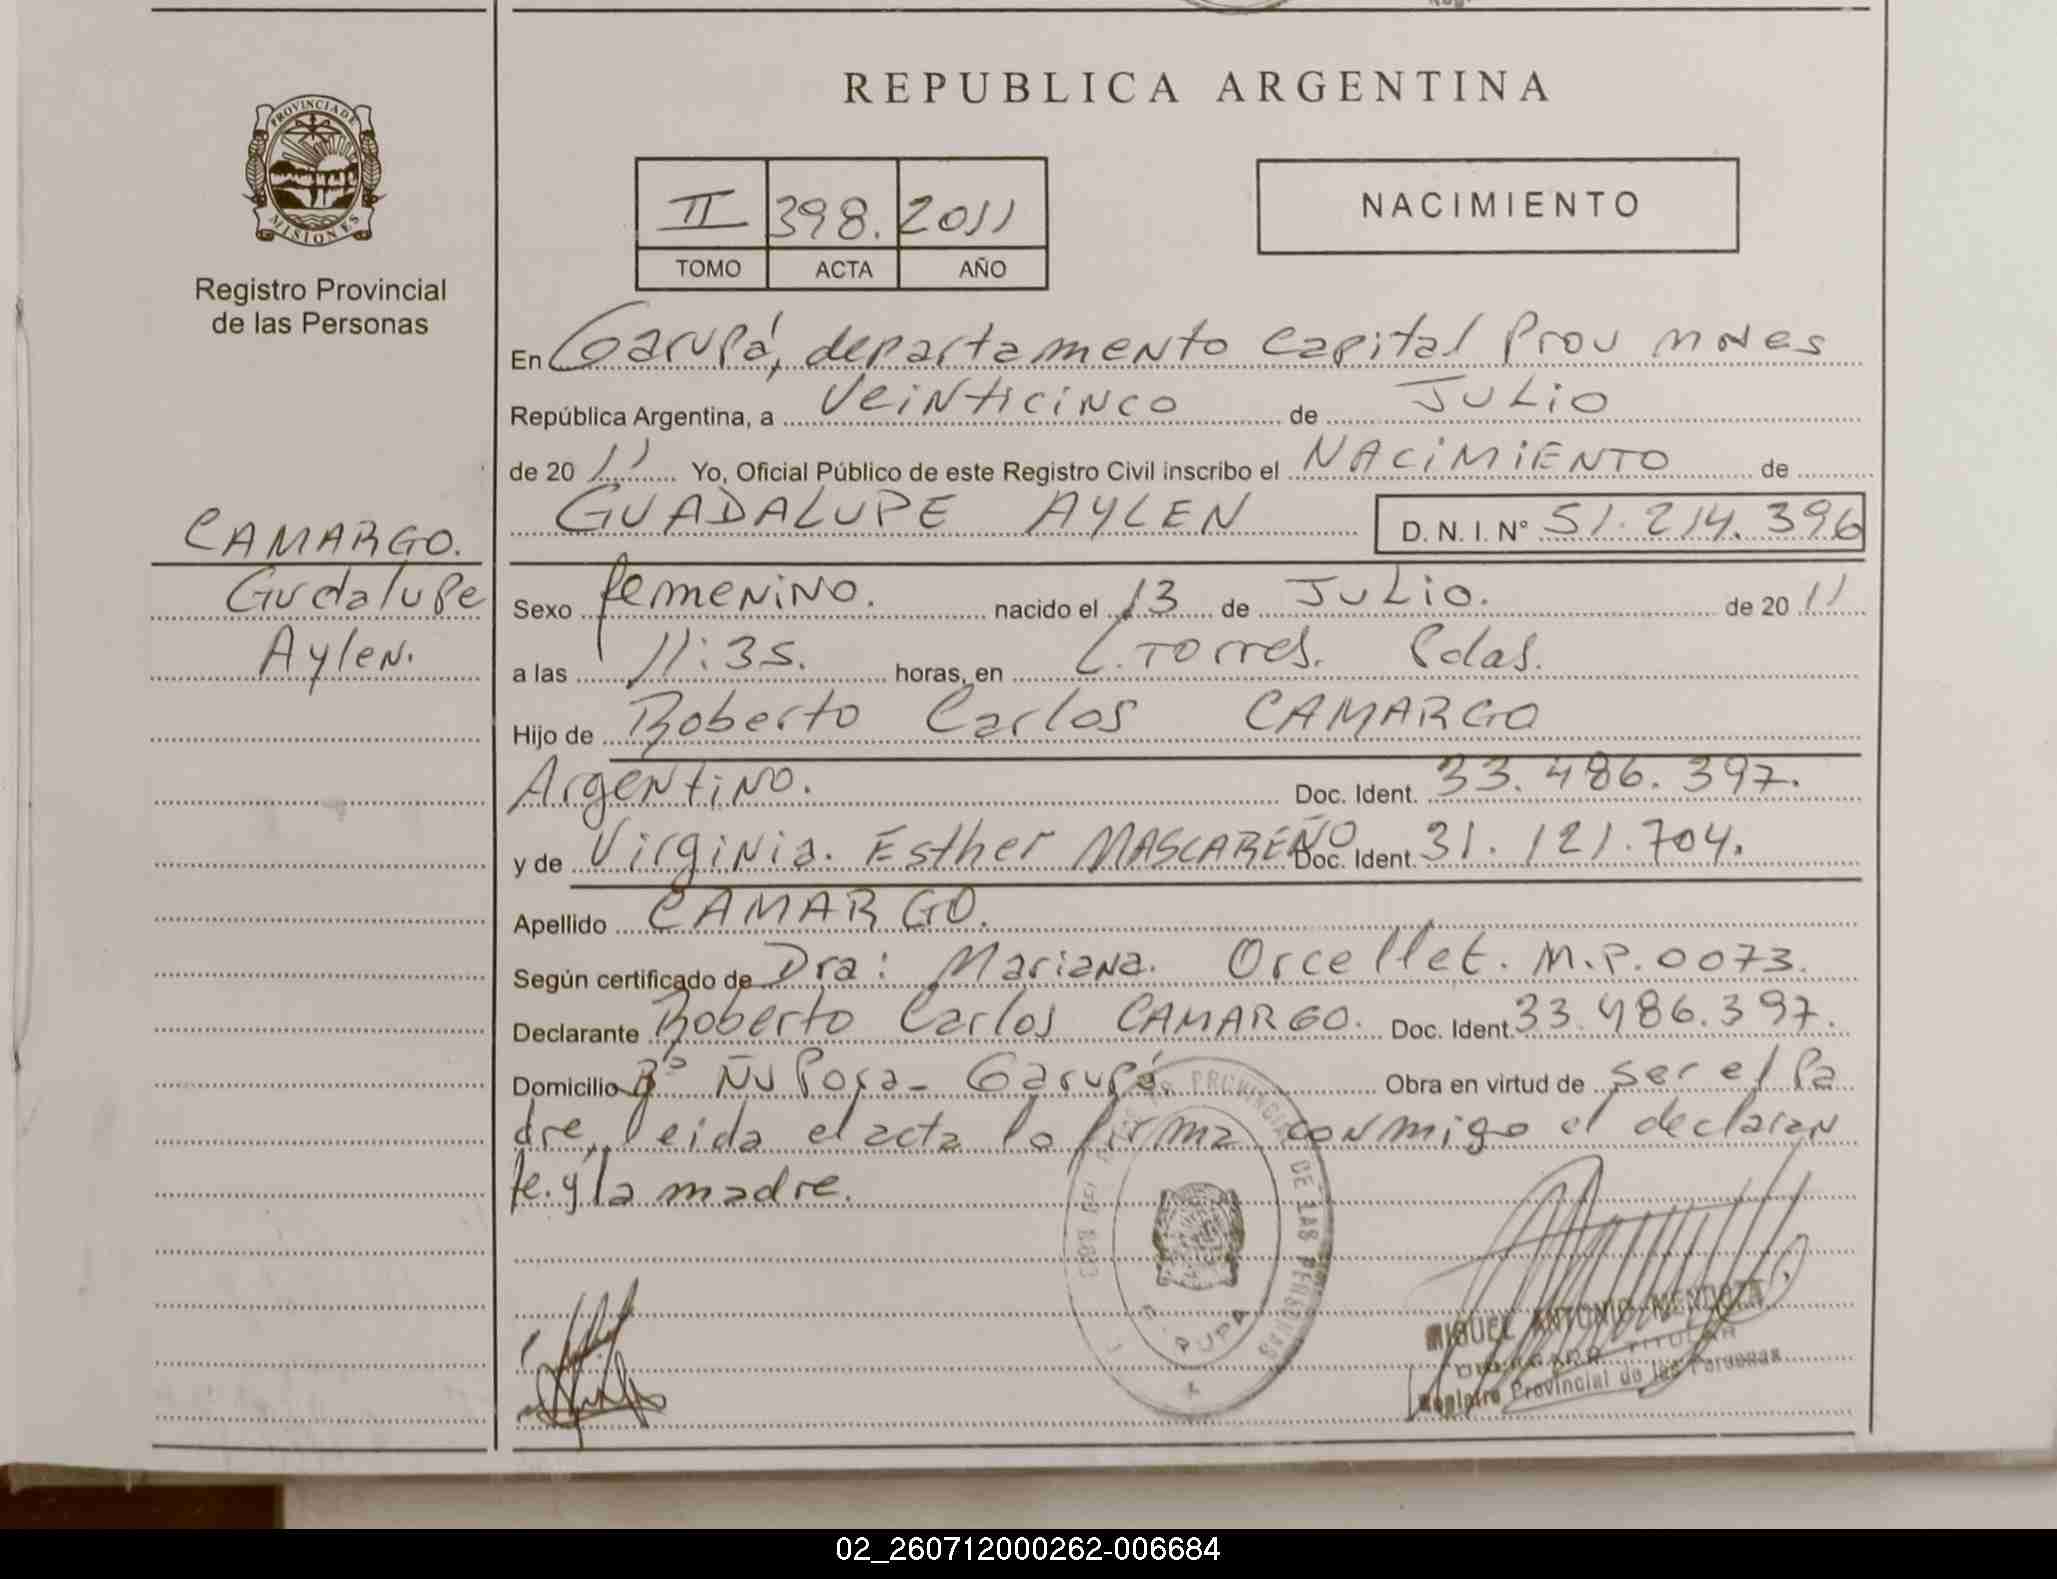 REPUBLICA ARGENTINA
PROVINCIA DE
MISIONES
Registro Provincial
de las Personas
II 398. 2011
TOMO ACTA AÑO
NACIMIENTO
En Garupá, departamento Capital Prov Mnes
República Argentina, a veinticinco de Julio
de 20 11 Yo, Oficial Público de este Registro Civil inscribo el NACIMIENTO de
GUADALUPE AYLEN D. N. I. N° 51.214.396
CAMARGO.
Gudalupe
Aylen.
Sexo femenino. nacido el 13 de Julio. de 20 11
a las 11:35. horas, en L. Torres. Pdas.
Hijo de Roberto Carlos CAMARGO
Argentino. Doc. Ident. 33.486.397.
y de Virginia. Esther MASCAREÑO Doc. Ident. 31.121.704.
Apellido CAMARGO.
Según certificado de Dra: Mariana. Orcellet. M.P. 0073.
Declarante Roberto Carlos CAMARGO. Doc. Ident. 33.486.397.
Domicilio B° Ñu Pora - Garupá Obra en virtud de ser el Pa
dre, leida el acta la firma conmigo el declaran
te. y la madre.
PROVINCIAL DE LAS PERSONAS
MIGUEL ANTONIO MENDOZA
TITULAR
Registro Provincial de las Personas
02_260712000262-006684